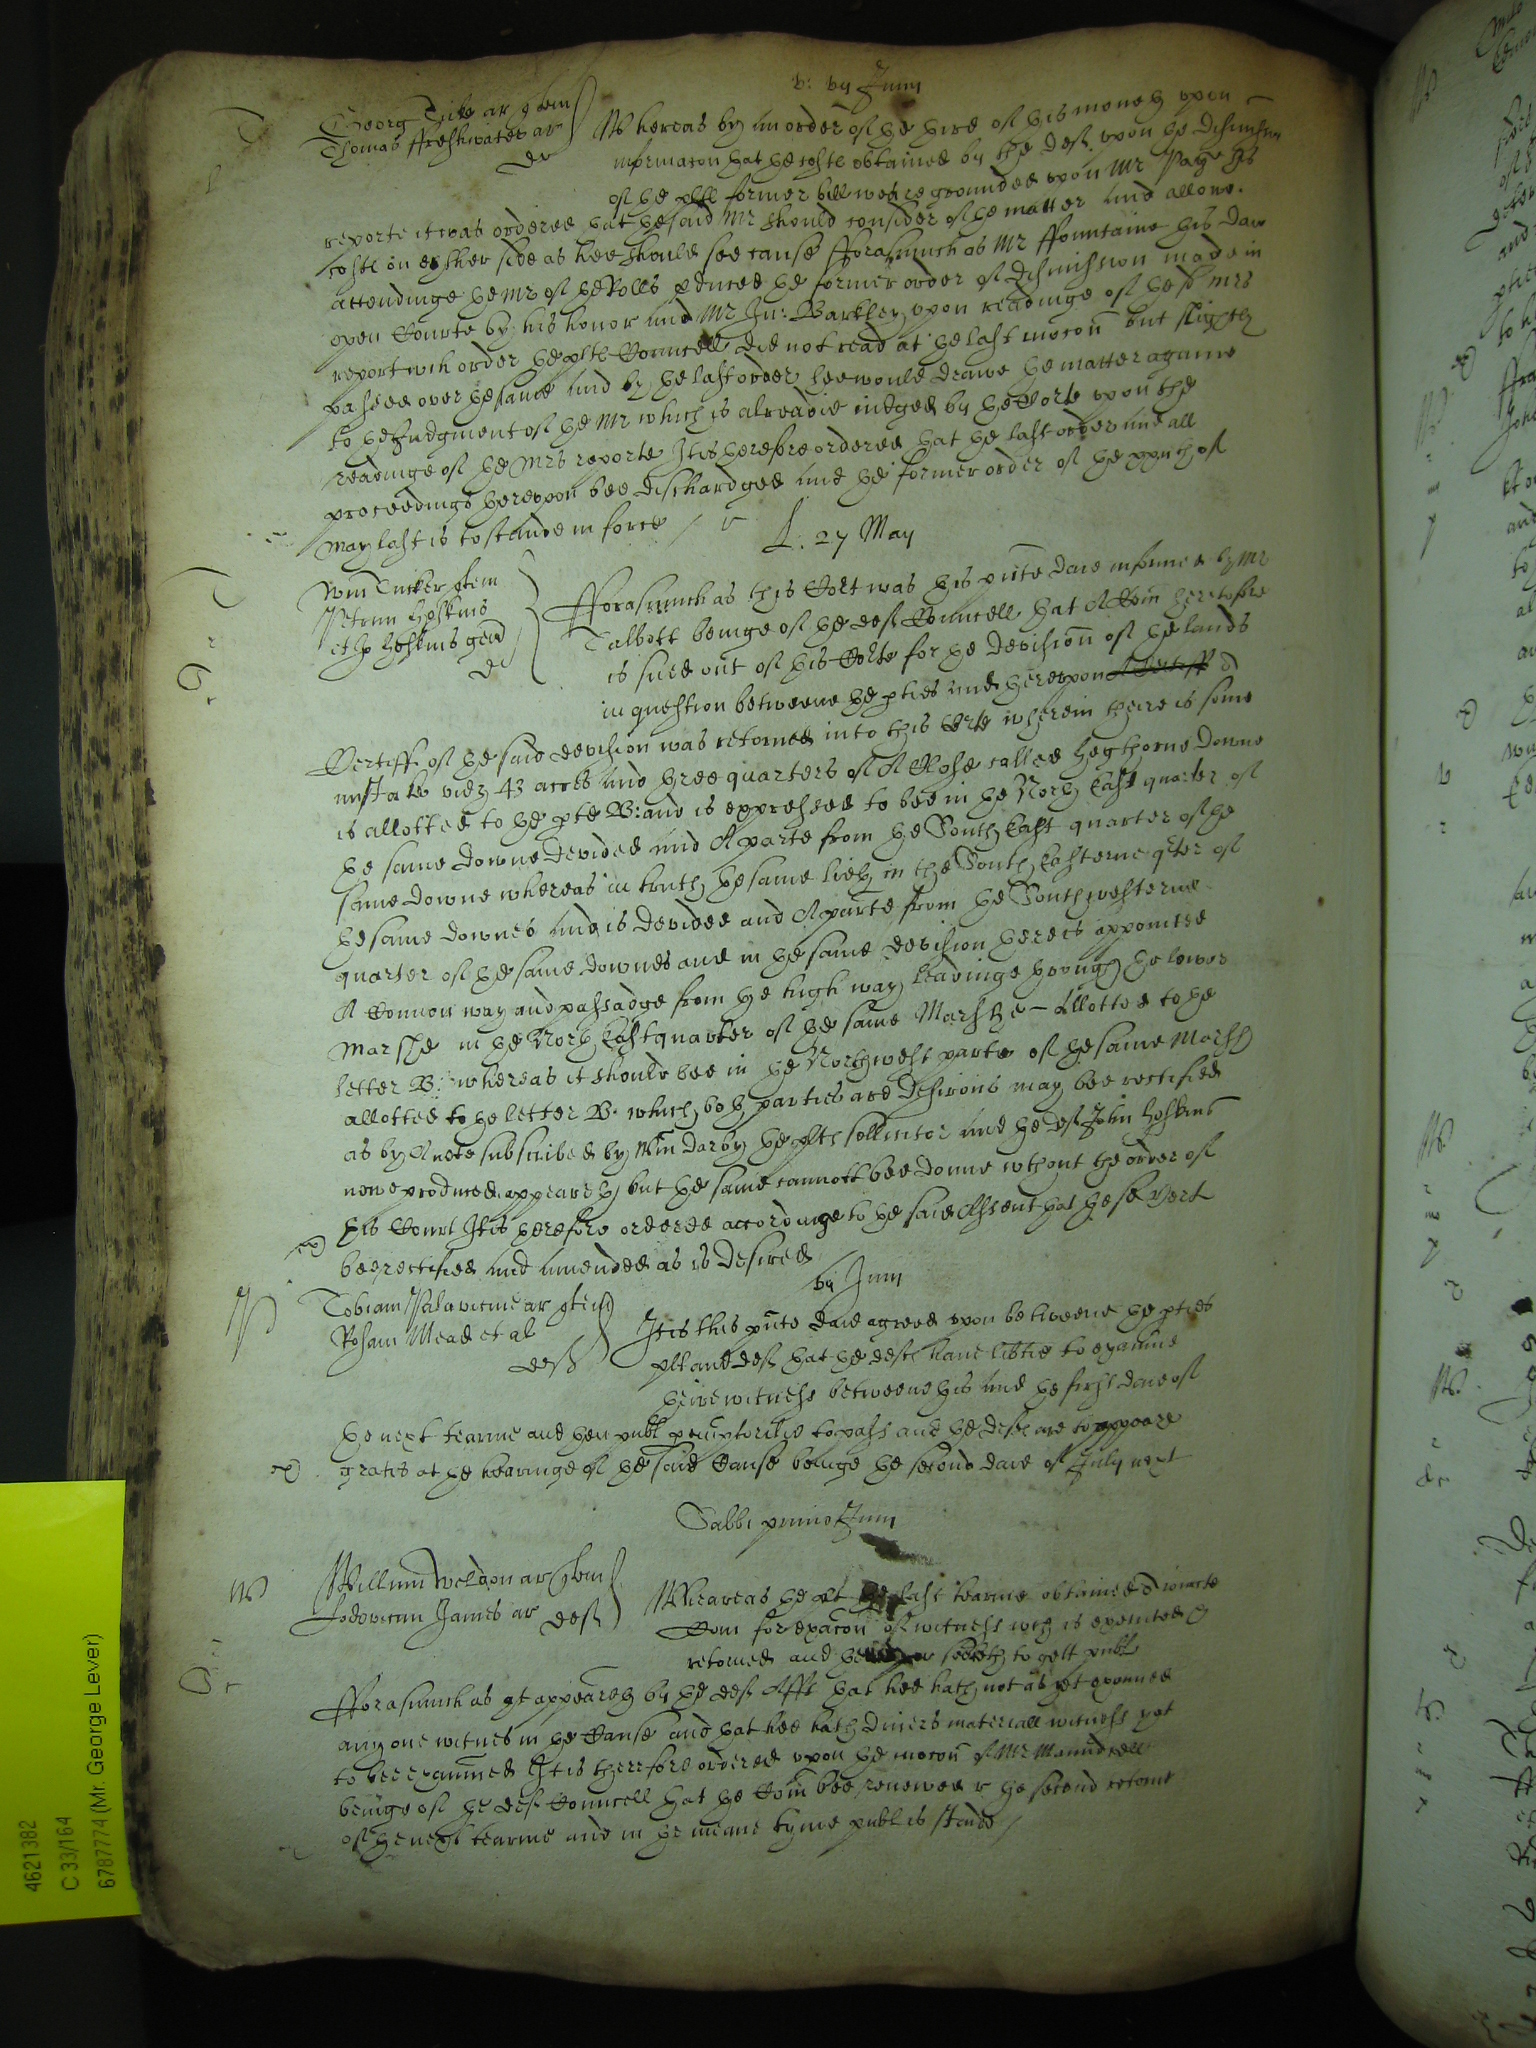 v: vij Junij
Georg Tite ar quer
Thomas ffreshwater ar
def
Whereas by an order of the third of this moneth upon
informacon that the costs obtained by the def upon the dismission
of the plts former bill weare grounded upon Mr Page his
reporte it was ordered that the said Mr should consider of the matter and allowe
costs on either side as hee should see cause fforasmuch as Mr ffountaine this daie
attendinge the Mr of the Rolls pduced the former order of dismission made in
open Courte by his honor and Mr Ju: Barkley upon readinge of the sd Mrs
report wch order the plts Councell did not read at the last mocon but slightly
passed over the same and by the last order hee would drawe the matter againe
to the Judgment of the Mr which is alreadie iudged by the Corte upon the
readinge of the Mrs reporte It is therefore ordered that the last order and all
proceedings thereupon bee dischardged and the former order of the of
may last is to stande in force
27 May
Wm Tucker quer
Petrum Hoskins
et Jo Hoskins gen
d
fforasmuch as this Cort was this pnte daie informed by Mr
Talbott beinge of the def Councell that A Com heretofore
is sued out of this Corte for the devision of the lands
in question betweene the pties and thereupon
Certiff of the said devision was retorned into this Corte wherein there is some
mistake viz 43 acres and three quarters of A Close called Heythorne Downe
is allotted to the pte B: and is expressed to bee in the North East quarter of
the same downe devided and A parte from the South East quarter of the
same downe whereas in truth the same lieth in the South Easterne qter of
the same downes and is devided and A parte from the Southwesterne
quarter of the same downes and in the same devision there is appointed
A Common way and passadge from the high way leadinge through the lower
Marshe in the North East quarter of the same Marshe - Allotted to the
letter B: whereas it should bee in the Northwest parte of the same Marsh
allotted to the letter B. which both parties are desirous may bee rectified
as by A note subscribed by Wm Darby the plts sollicitor and the def John Hoskins
nowe produced appeareth but the same cannott bee donne wthout the order of
this Court It is therefore ordered accordinge to the said Assent that the sd Cert
bee rectified and amended as is desired
vij Junij
Tobiam Palavicine ar quer
Roham Mead et al
deft
It is this pnte daie agreed upon betweene the pties
plt and def that the defts have libtie to examine
theire witness betweene this and the first daie of
the next tearme and then publ pemptorilie to pass and the defts are to appeare
gratis at the hearinge of the said Cause beinge the second daie of July next
Sabbi primo Junij
Willimu Weldon ar quer
Lodovicum James ar def
Wheareas the plt the last tearme obtained A ioincte
Com for exacon of witness wch is executed &
retorned and the seeketh to gett publ
fforasmuch as yt appeareth by the def Afft that hee hath not as yet examined
any one witnes in the Cause and that hee hath divers materiall witness yet
to bee examined It is therefore ordered upon the mocon of Mr Maundrell
beinge of the def Councell that the Com bee renewed r the second retorne
of the next tearme and in the meane tyme publ is staied
4621382
C 33/164
6787774 (Mr. George Lever)